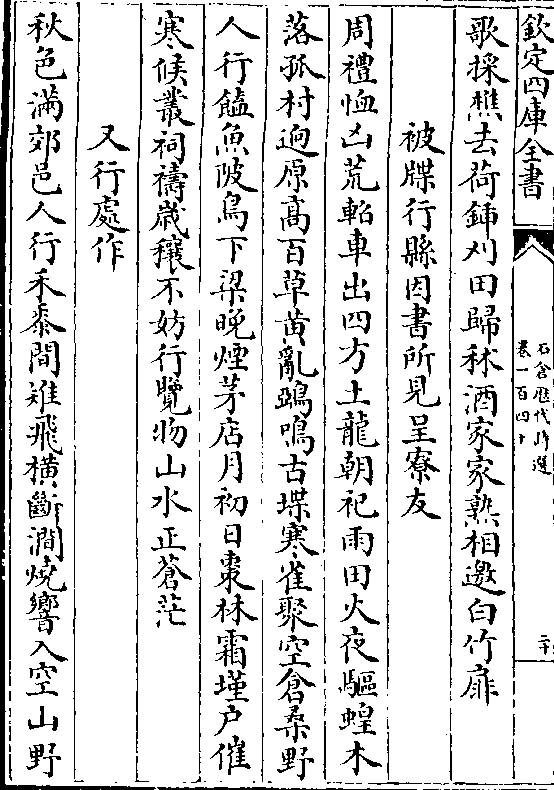 欽定四庫全書
石倉歷代詩選
卷一百四十
二十
歌採樵去荷鍤刈田歸秫酒家家熟相邀白竹扉
被牒行縣因書所見呈寮友
周禮恤凶荒軺車出四方土龍朝祀雨田火夜驅蝗木
落孤村迥原高百草黄亂鵶鳴古堞寒雀聚空倉桑野
人行饁魚陂鳥下梁晚煙茅店月初日棗林霜墐户催
寒候叢祠禱歲穰不妨行覽物山水正蒼茫
又行處作
秋色滿郊邑人行禾黍間雉飛横斷澗燒響入空山野